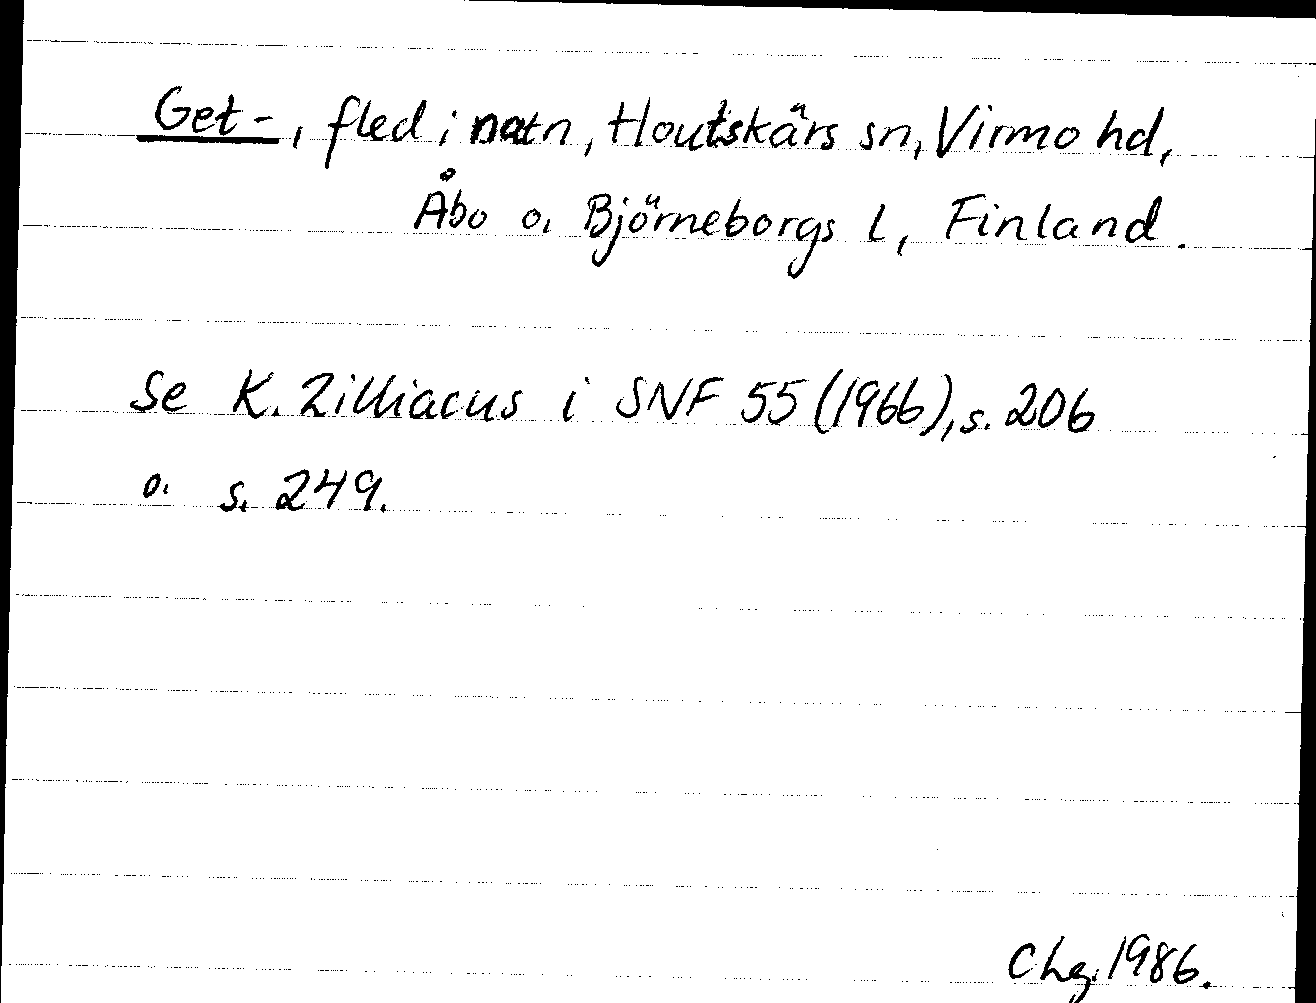 Get-, fled i natn, Houtskärs sn, Virmo hd,
Åbo o. Björneborgs l, Finland.
Se K. Zilliacus i SNF 55 (1966), s. 206
o. s. 249.
Chg. 1986.